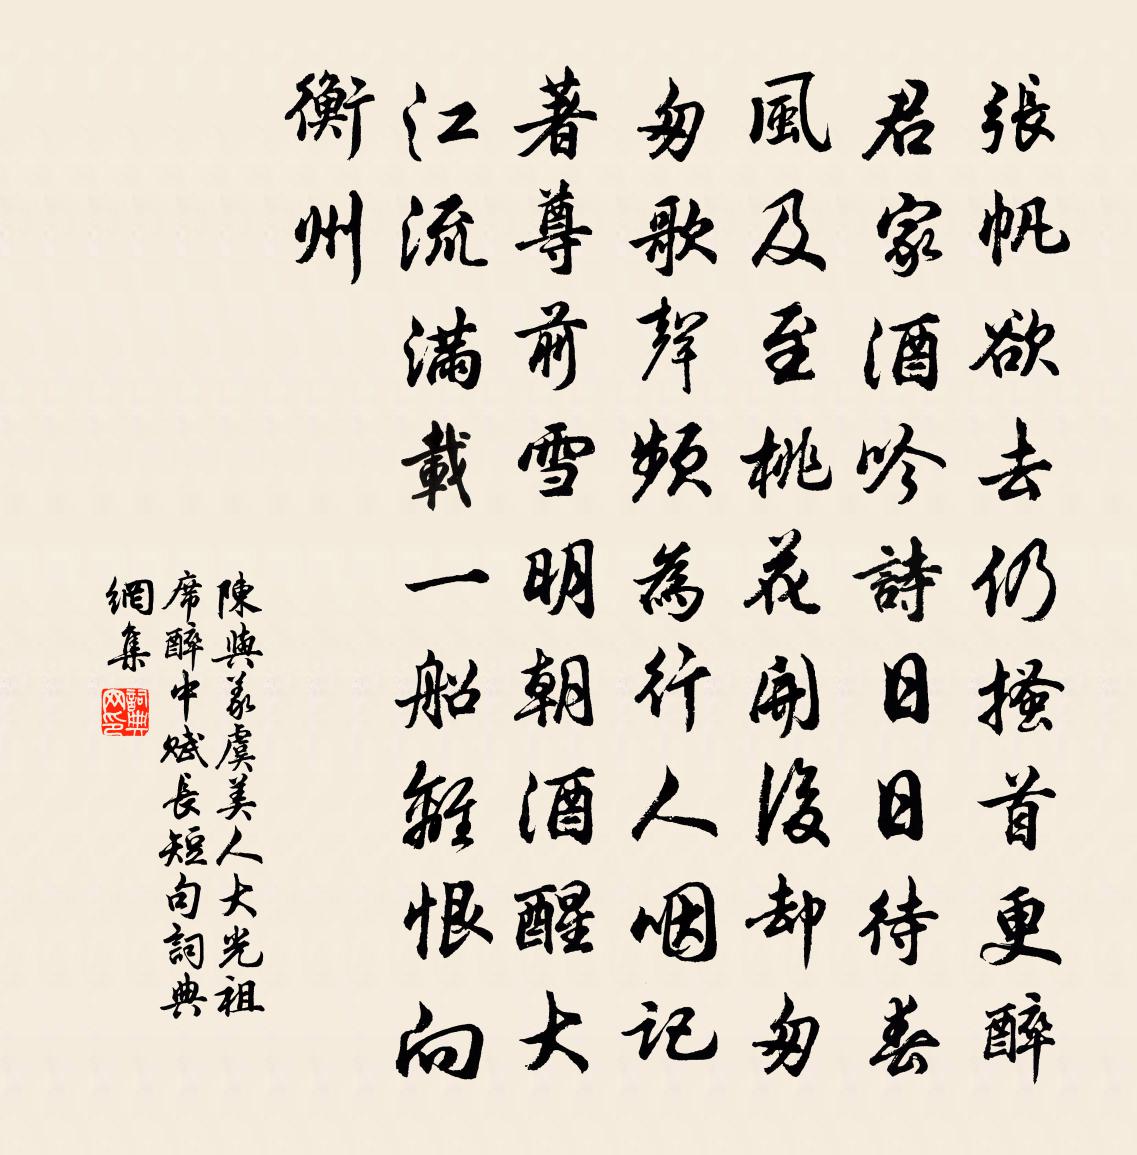 張帆欲去仍搔首更醉
君家酒吟詩日日待春
風及至桃花開後却匆
匆歌聲頻為行人咽記
著尊前雪明朝酒醒大
江流滿載一船離恨向
衡州
陳與義虞美人大光祖
席醉中賦長短句詞典
網集
詞典
网印